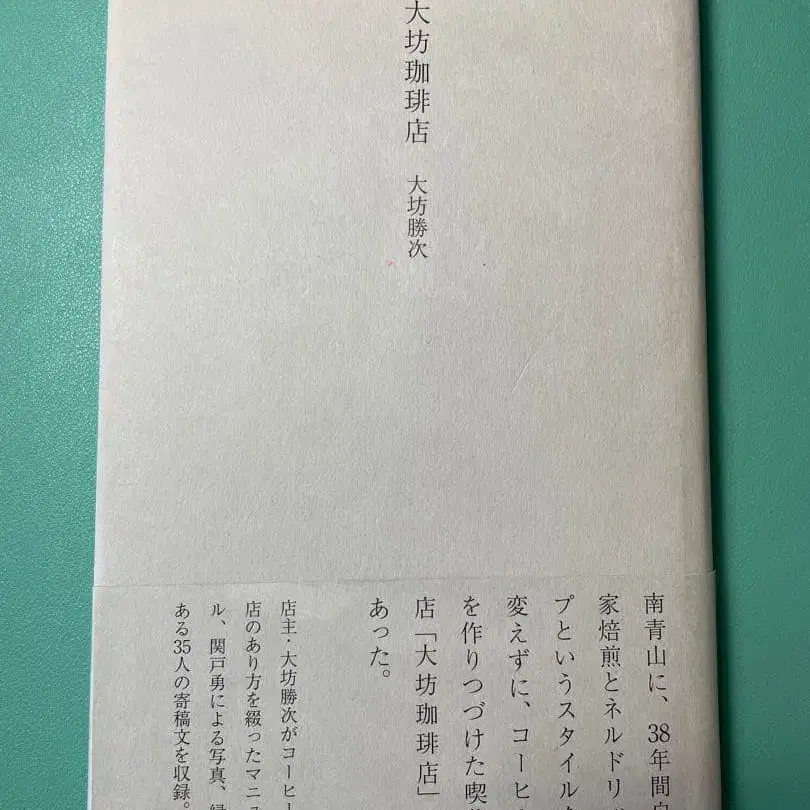 大坊珈琲店
大坊勝次
南青山に、38年間自
家焙煎とネルドリ
プというスタイルを
変えずに、コーヒ
を作りつづけた喫
店「大坊珈琲店」
あった。
店主・大坊勝次がコーヒー
店のあり方を綴ったマニュ
ル、関戸勇による写真、縁
ある35人の寄稿文を収録。